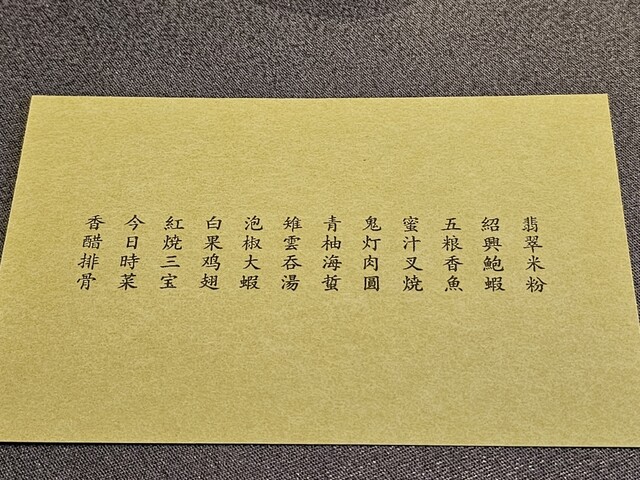 翡翠米粉
紹興鮑蝦
五粮香魚
蜜汁叉燒
鬼灯肉圓
青柚海蜇
雉雲吞湯
泡椒大蝦
白果鸡翅
紅焼三宝
今日時菜
香醋排骨